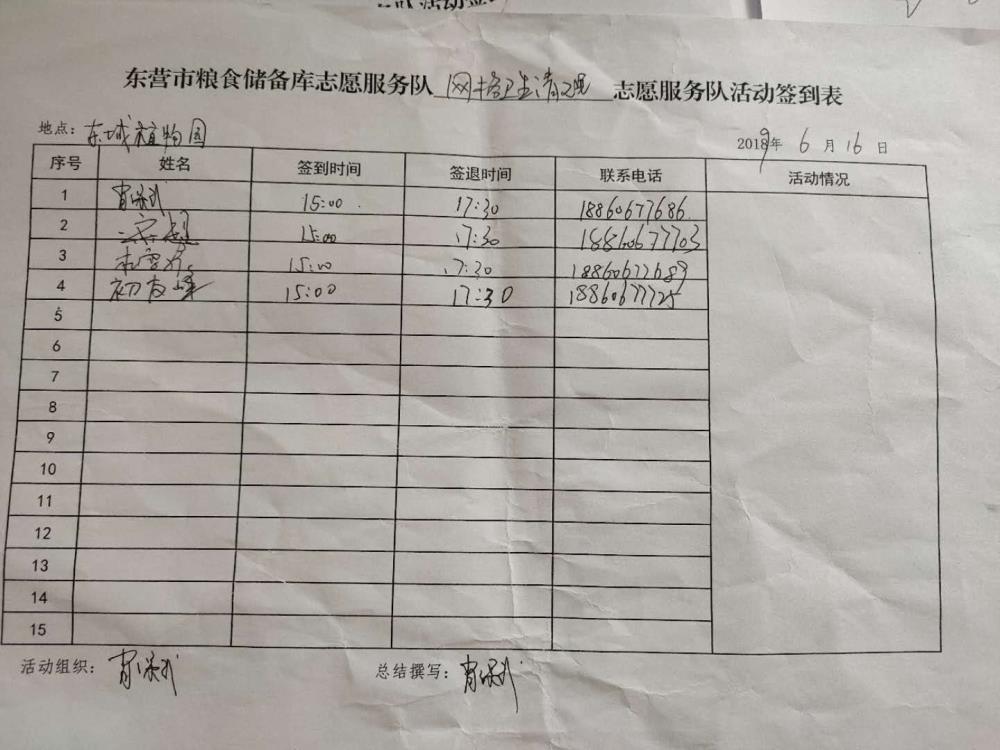 东营市粮食储备库志愿服务队 网格卫生清理 志愿服务队活动签到表
地点：东城植物园
2019年 6 月 16 日
序号 姓名 签到时间 签退时间 联系电话 活动情况
1 15:00 17:30 18860677686
2 15:00 17:30 18860677703
3 15:00 17:30 18860677689
4 初友峰 15:00 17:30 18860677725
5
6
7
8
9
10
11
12
13
14
15
活动组织： 总结撰写：